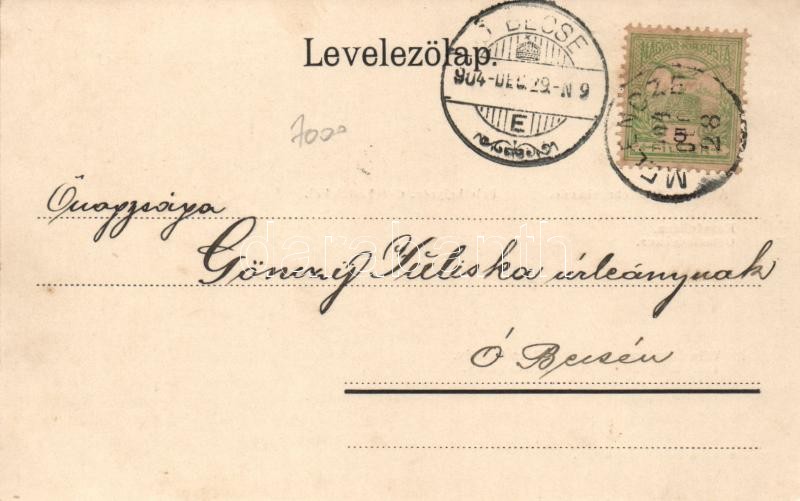 Levelezőlap.
BECSE
904-DEC.29.-N 9
E
MAGYAR KIR. POSTA
5
28
7000
Őnagysága
Gönczy Juliska úrleánynak
Ó Becsén
darabanth